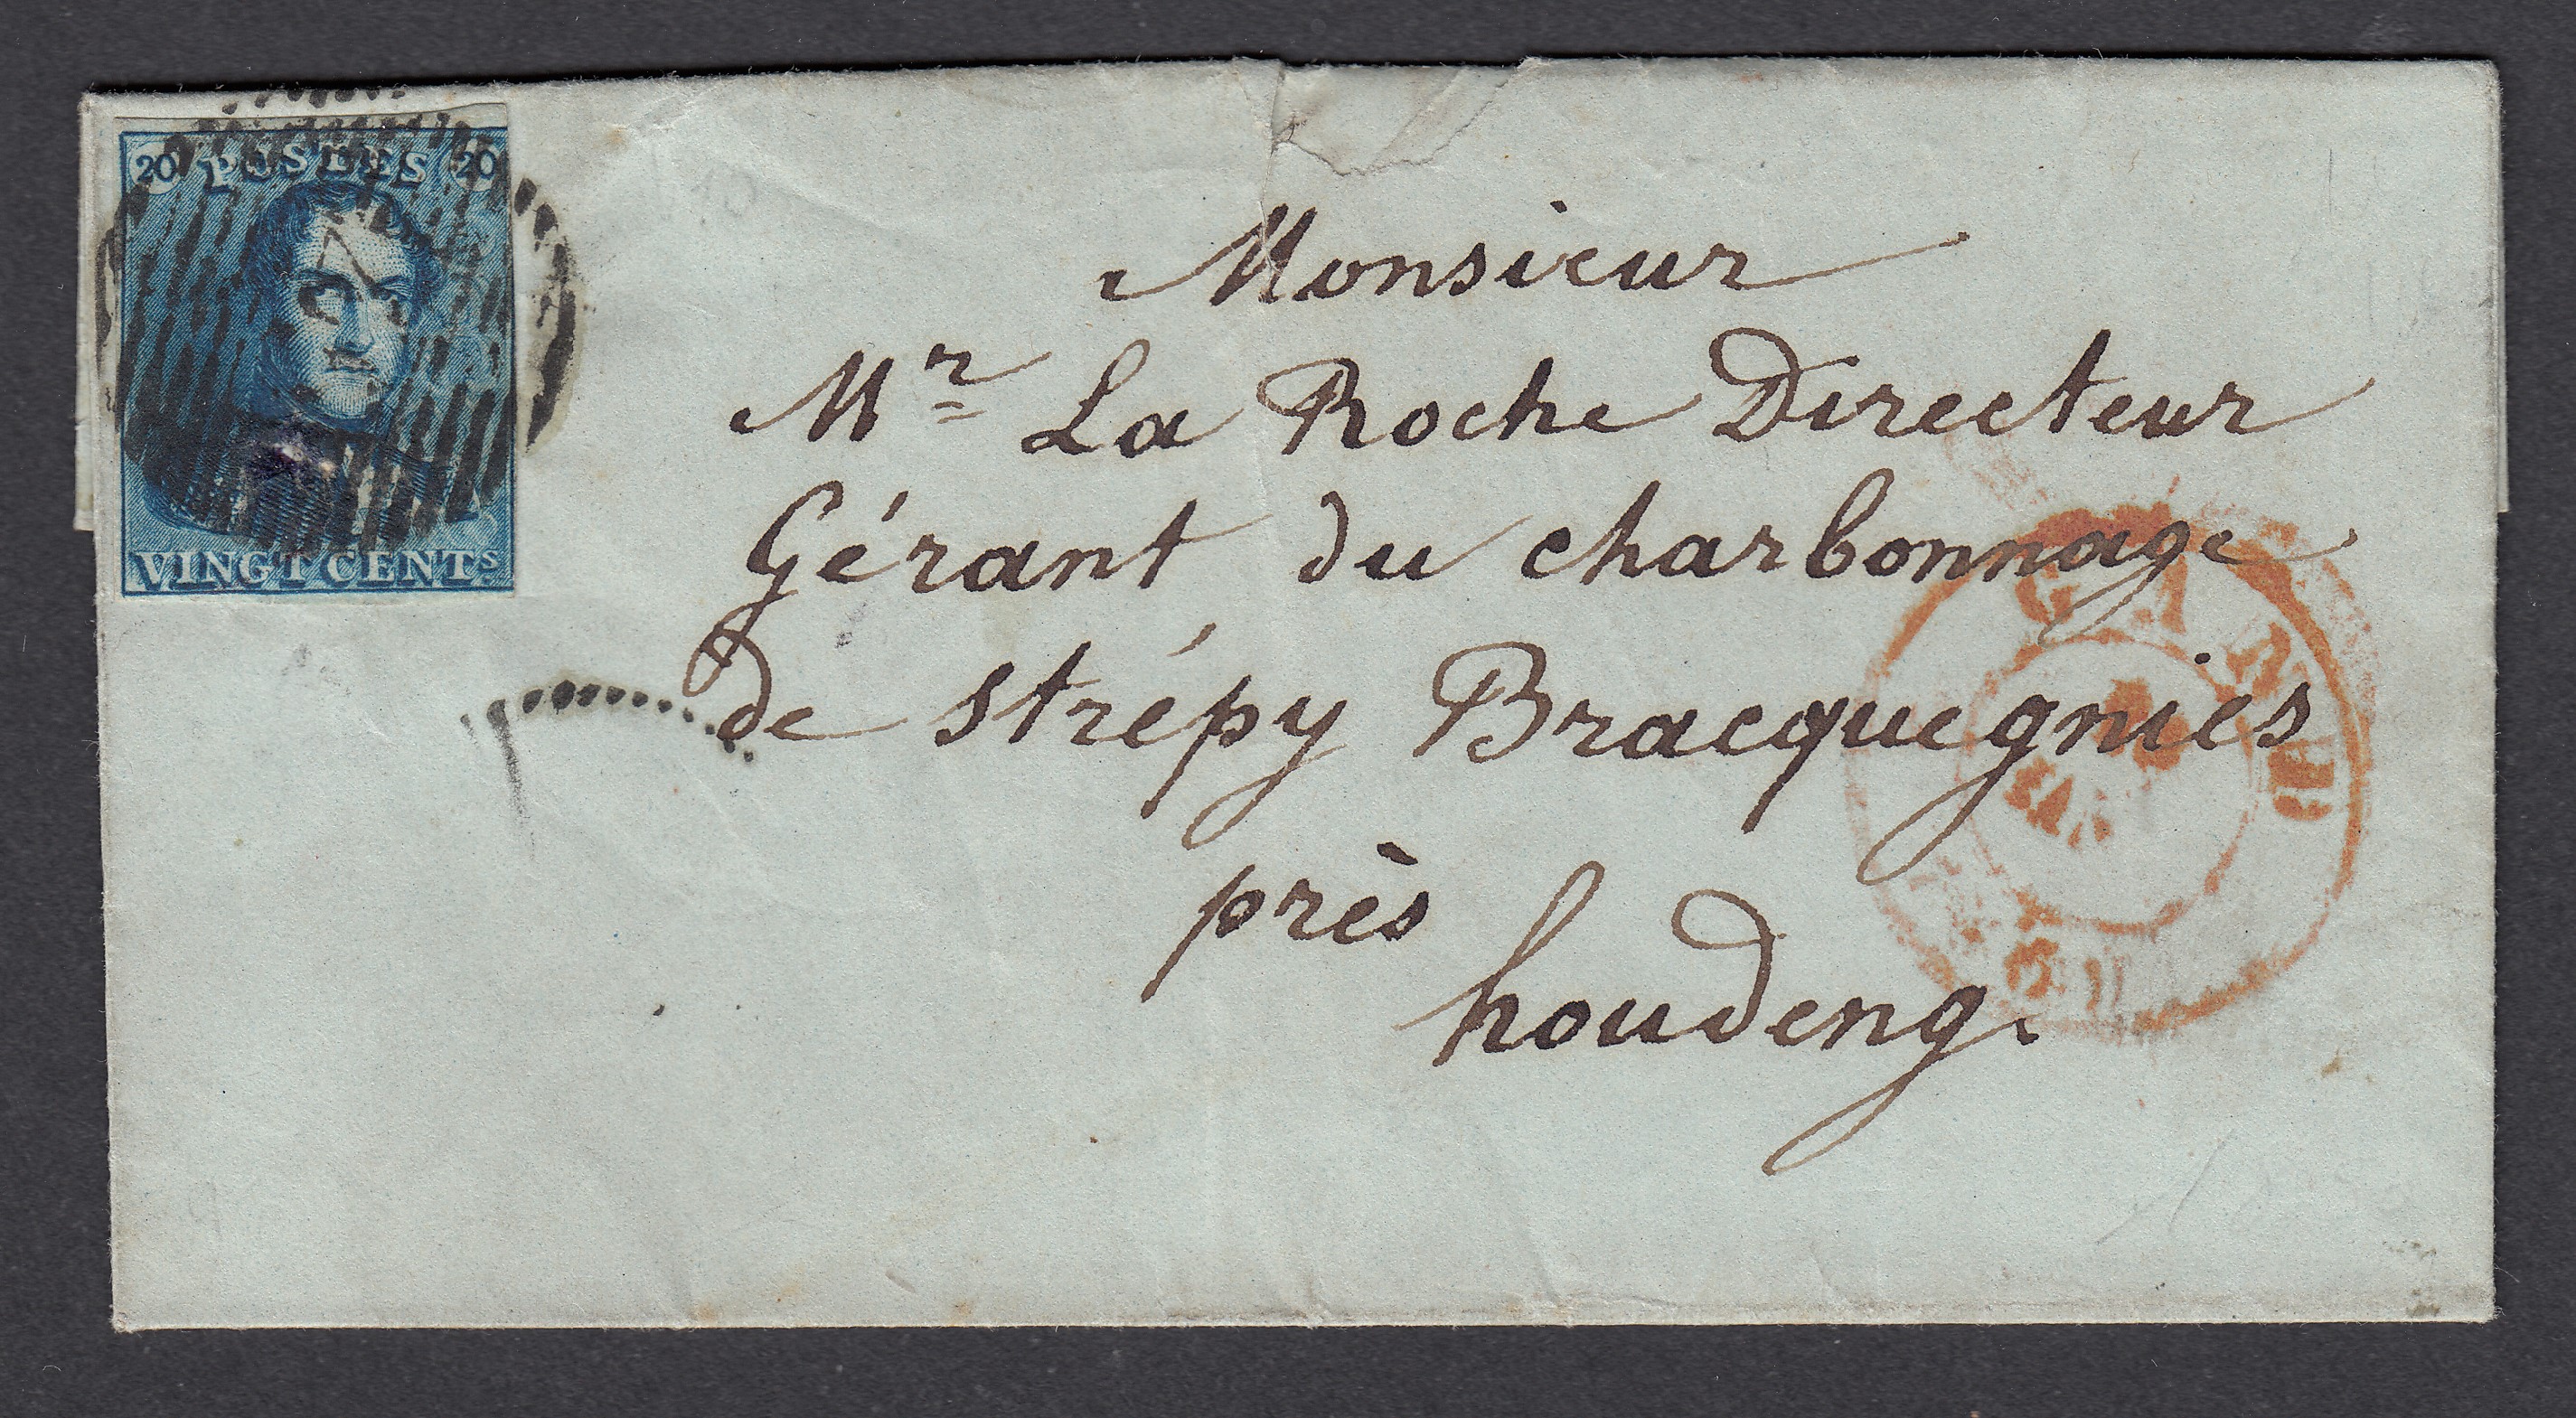 20 POSTES 20
VINGT CENTS
Monsieur
Mr La Roche Directeur
Gérant du charbonnage
de strépy Bracquegnies
près
houdeng.
GAND